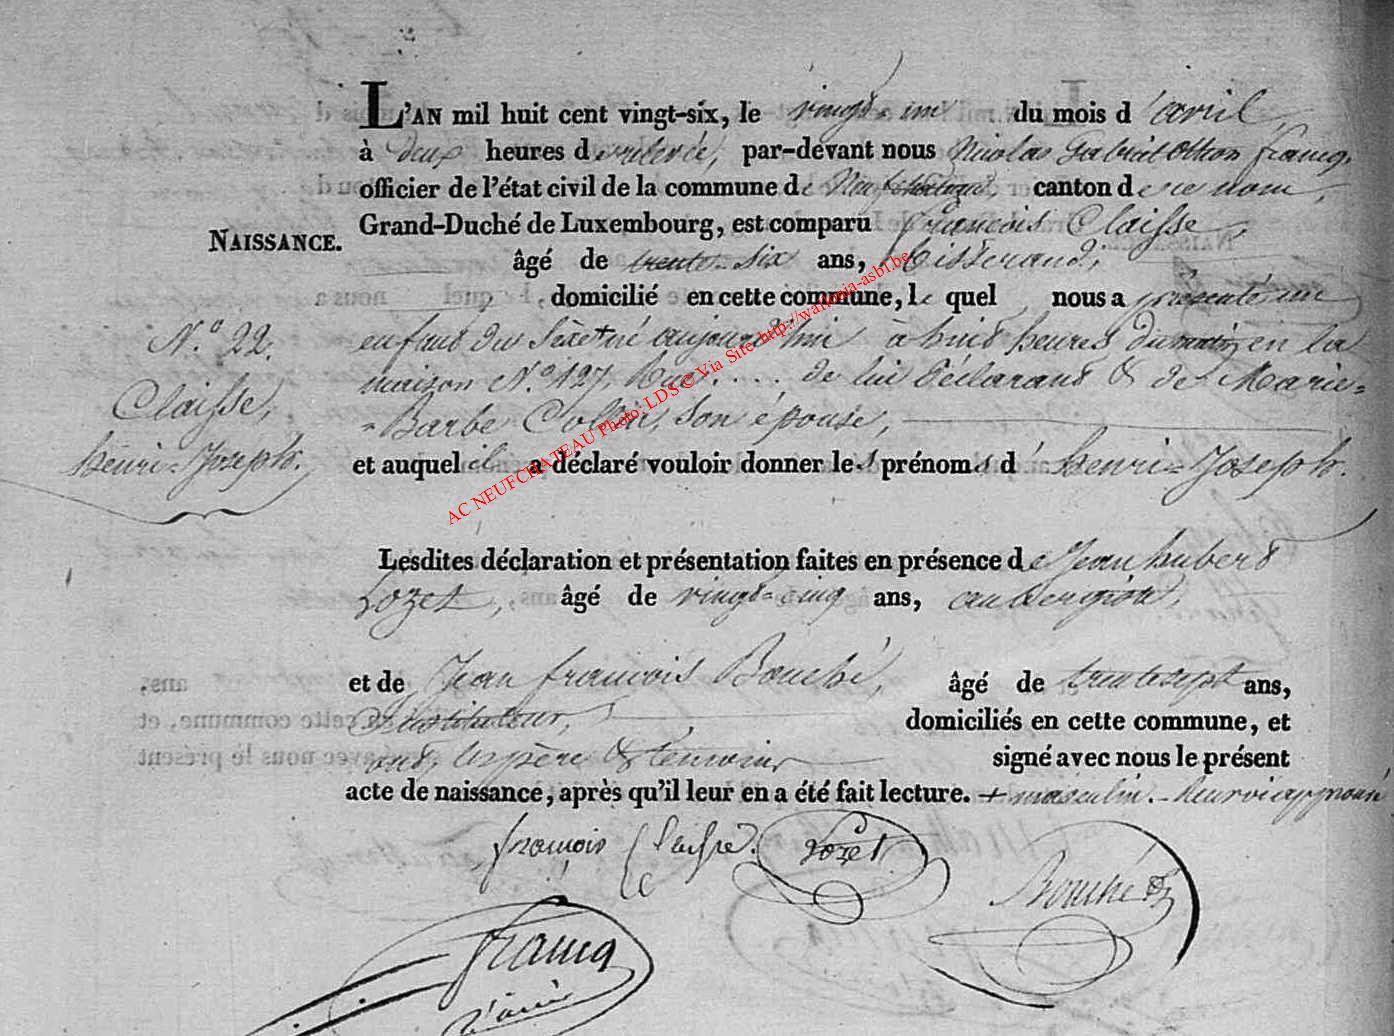 L'AN mil huit cent vingt-six, le vingt-un du mois d'avril,
à deux heures de relevée, par-devant nous Nicolas Gabriel Othon francq,
officier de l'état civil de la commune de Neufchateau, canton de ce nom,
Grand-Duché de Luxembourg, est comparu françois Claisse,
NAISSANCE.
âgé de trente-six ans, tisserand,
domicilié en cette commune, le quel nous a présenté un
N.° 22.
enfant du Sèxe + né aujourd'hui à huit heures du matin, en la
maison N.° 127, Rue .... de lui Déclarant & de Marie=
Claisse,
=Barbe Collin, son épouse,
henri=Joseph.
et auquel il a déclaré vouloir donner les prénoms d' henri=Joseph.
Lesdites déclaration et présentation faites en présence de Jean hubert
Lozet, âgé de vingt=cinq ans,
et de Jean françois Bouché, âgé de trente sept ans,
instituteur, domiciliés en cette commune, et
ont, les père & temoins signé avec nous le présent
acte de naissance, après qu'il leur en a été fait lecture. + masculin. approuvé
françois Claisse. Lozet
Bouché
francq
AC NEUFCHATEAU Photo. LDS © Via Site: http://wallonia-asbl.be